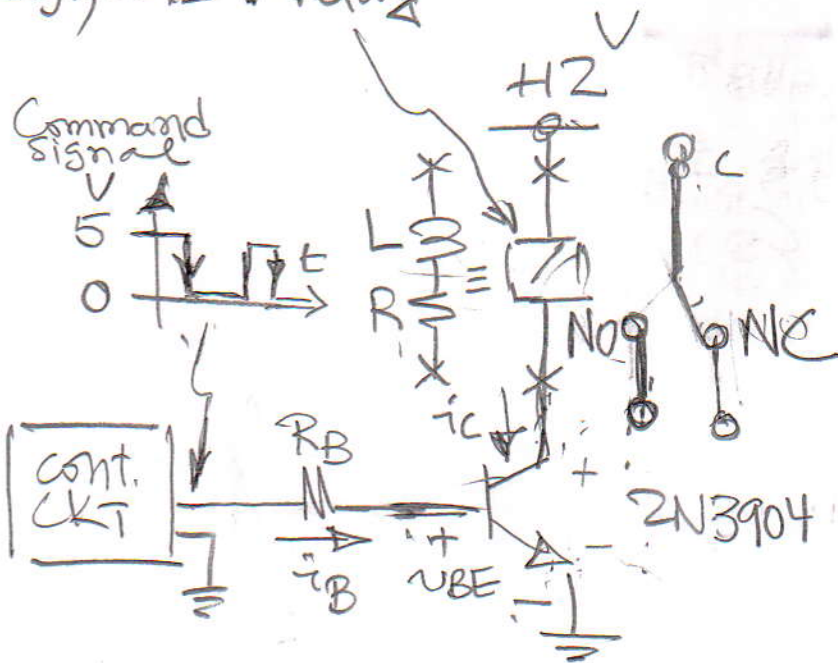 relay
V
H2
Command
signal
V
5
0
t
L
R
C
NO
NC
iC
RB
cont.
CKT
iB
+
VBE
-
+
-
2N3904